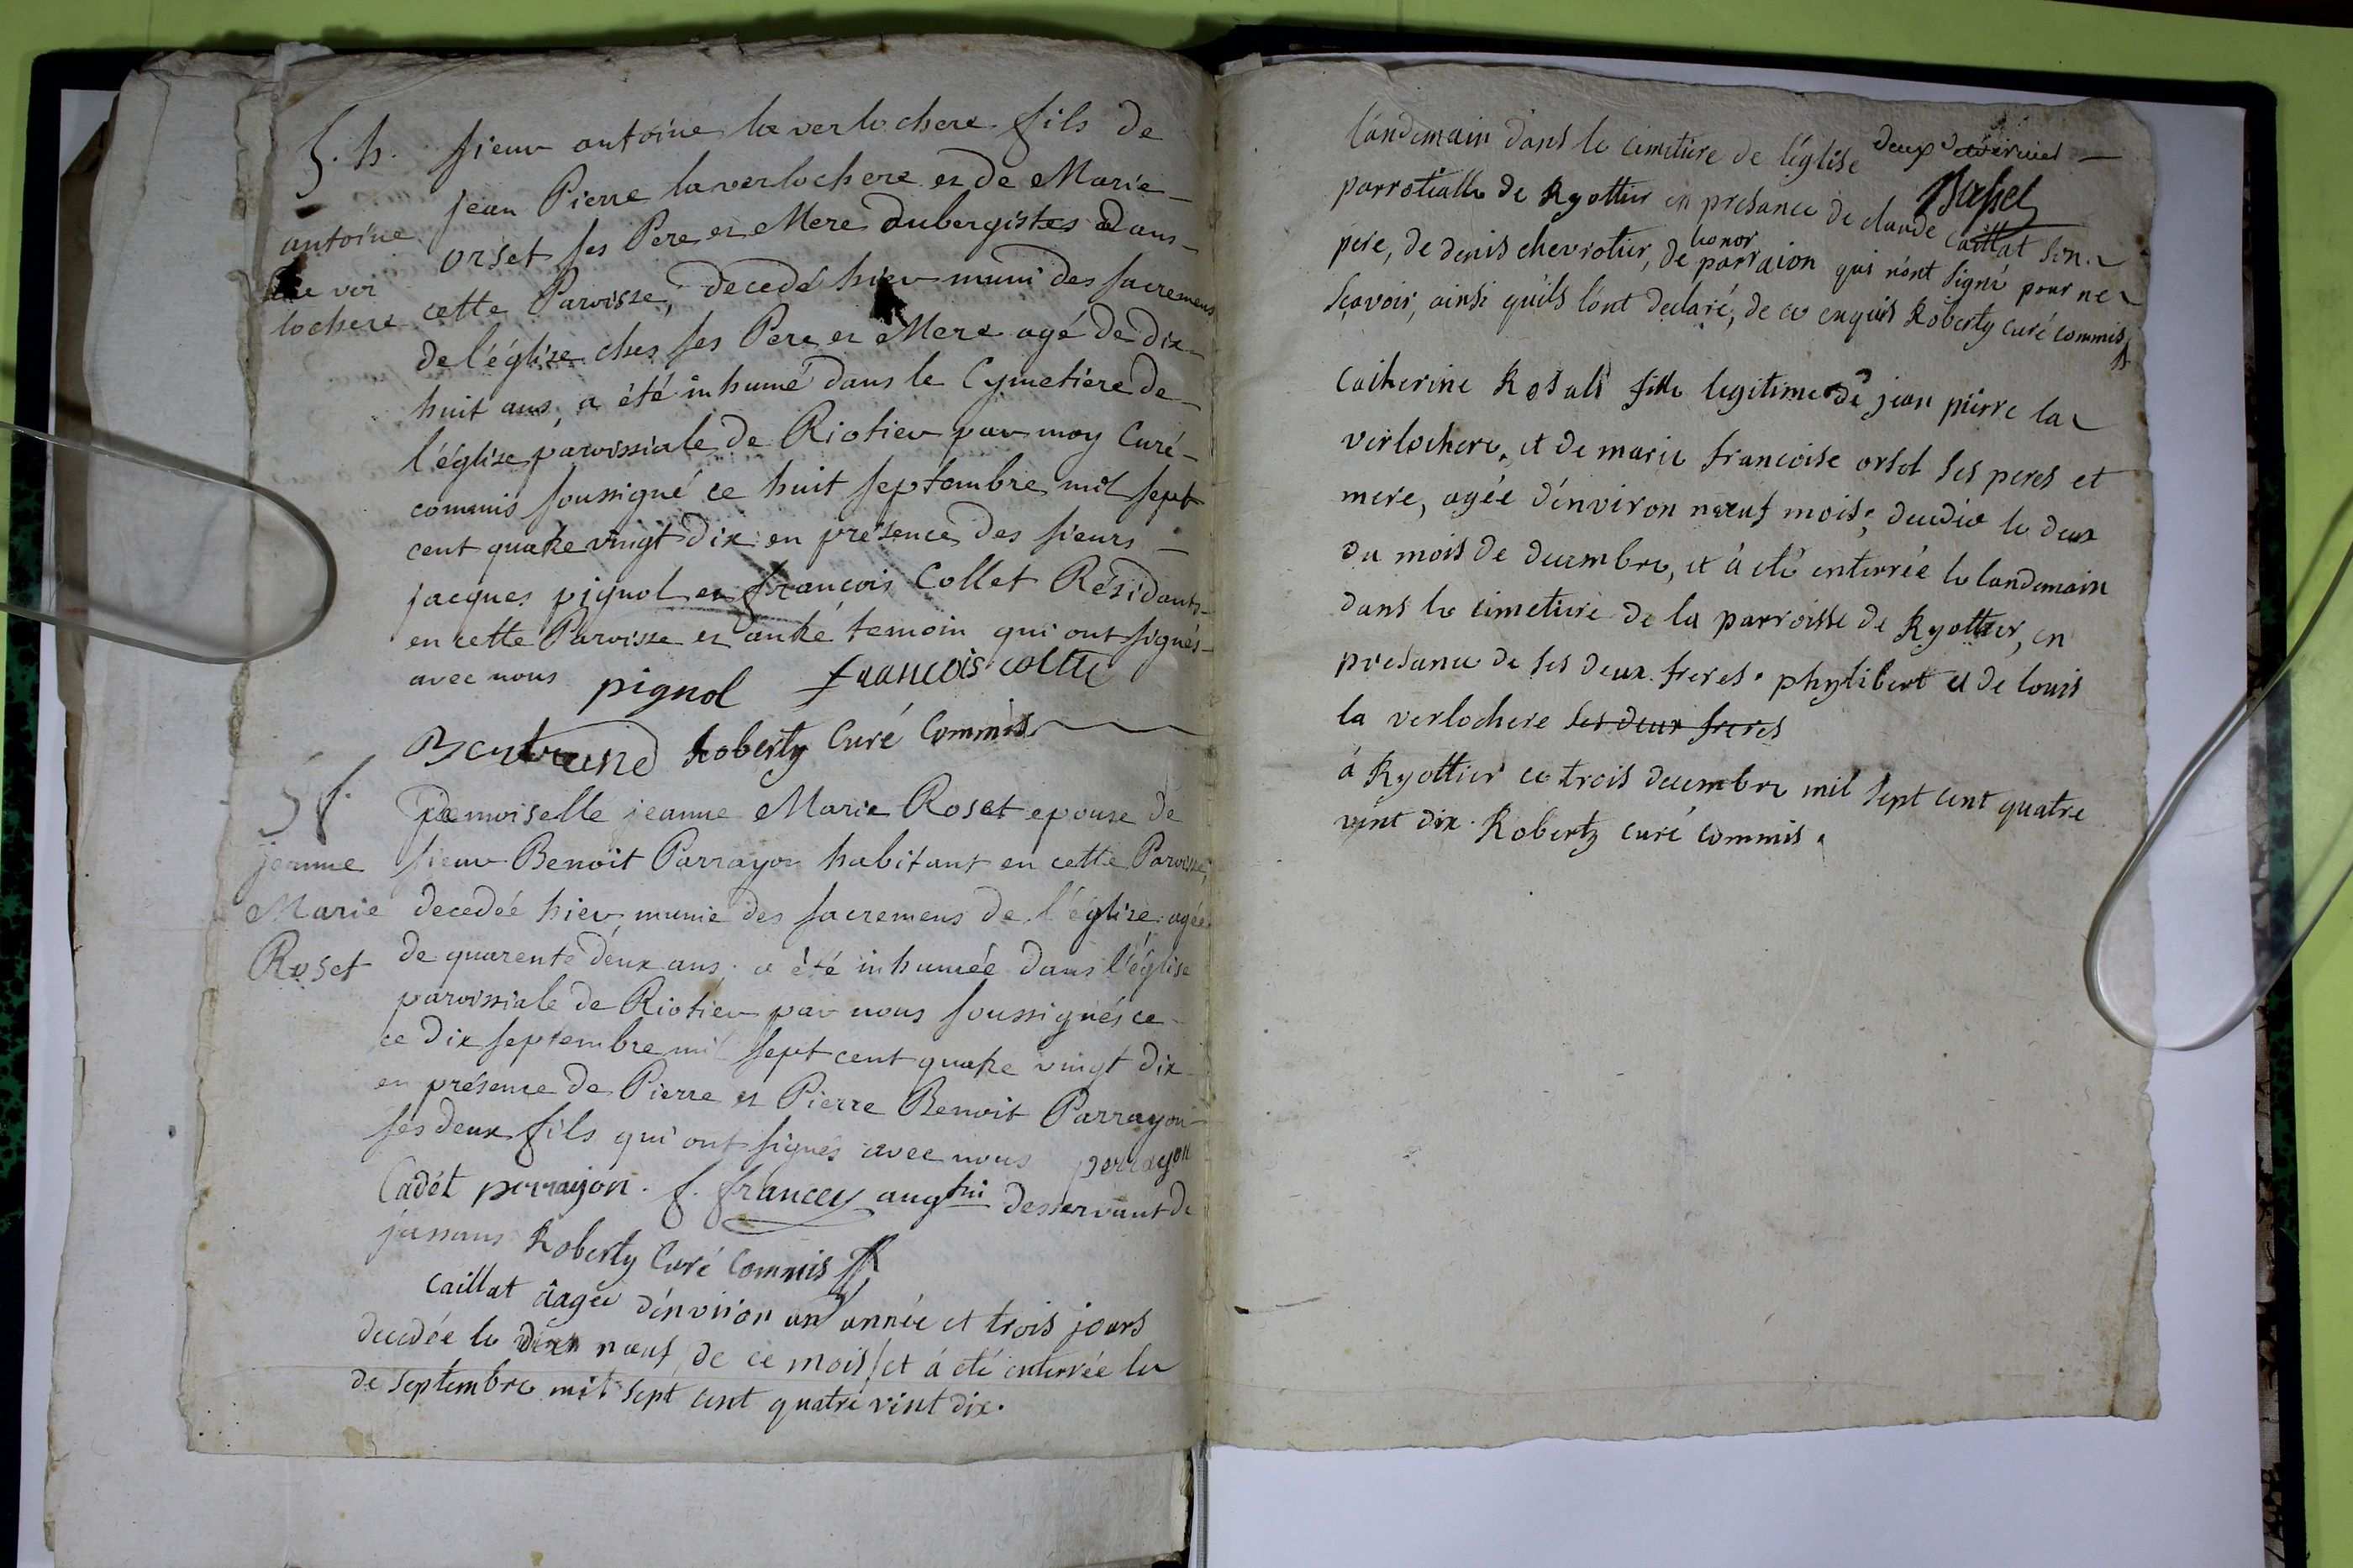 S. h.
antoine
la ver
lochere
sieur antoine la verlochere fils de
jean Pierre laverlochere et de Marie
orset ses Pere et Mere aubergistes dans
cette Paroisse, decedé hier muni des sacremens
de l'église ches ses Pere et Mere agé de dix
huit ans, a été inhumé dans le Cymetiere de
l'église paroissiale de Riotier par moy Curé
commis soussigné ce huit septembre mil sept
cent quatre vingt dix en présence des sieurs
jacques pignol et françois Collet Résidants
en cette Paroisse et autre temoin qui ont signés
avec nous pignol francois collet
Bertrand Roberty Curé Commis
S h.
jeanne
Marie
Roset
Demoiselle jeanne Marie Roset epouse de
sieur Benoit Parrayon habitant en cette Paroisse,
decedée hier, munie des sacremens de l'église agée
de quarente deux ans a été inhumée dans l'église
paroissiale de Riotier par nous soussignés ce
ce dix septembre mil sept cent quatre vingt dix
en présence de Pierre et Pierre Benoit Parrayon
ses deux fils qui ont signés avec nous perrayon
Cadét perrayon. f. francey augtin desservant de
jassans Roberty Curé Commis
caillat âagée d'environ un année et trois jours
decedée le dix nœuf de ce mois et á eté enterrée le
de septembre mil sept cent quatre vint dix.
l'andemain dans le cimetiere de l'église deux
parrotialle de Ryottier en presance de claude caillat son
pere, de denis chevrotier, de honor parraion qui n'ont signé pour ne
sçavoir, ainsi qu'ils l'ont declaré, de ce enquis Roberty curé commis
Catherine Rosali fille legitime de jean pierre la
verlochere, et de marie francoise orset ses peres et
mere, agée d'environ nœuf mois; decedée le deux
du mois de decembre, et á eté enterrée le landemain
dans le cimetiere de la parroisse de Ryottier, en
presance de ses deux freres phylibert et de louis
la verlochere ses deux freres
á Ryottier ce trois decembre mil sept cent quatre
vint dix. Roberty curé commis.